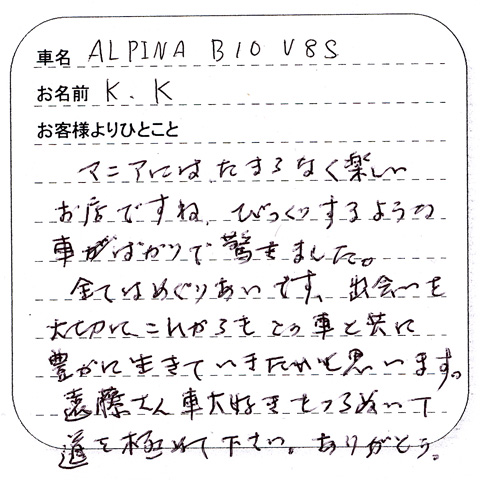 車名 ALPINA B10 V8S
お名前 K.K
お客様よりひとこと
マニアにはたまらなく楽しい
お店ですね、びっくりするような
車がばかりで驚きました。
全てはめぐりあいです、出会いを
大切に、これからもこの車と共に
豊かに生きていきたいと思います。
遠藤さん車大好きをつらぬいて
道を極めて下さい。ありがとう。